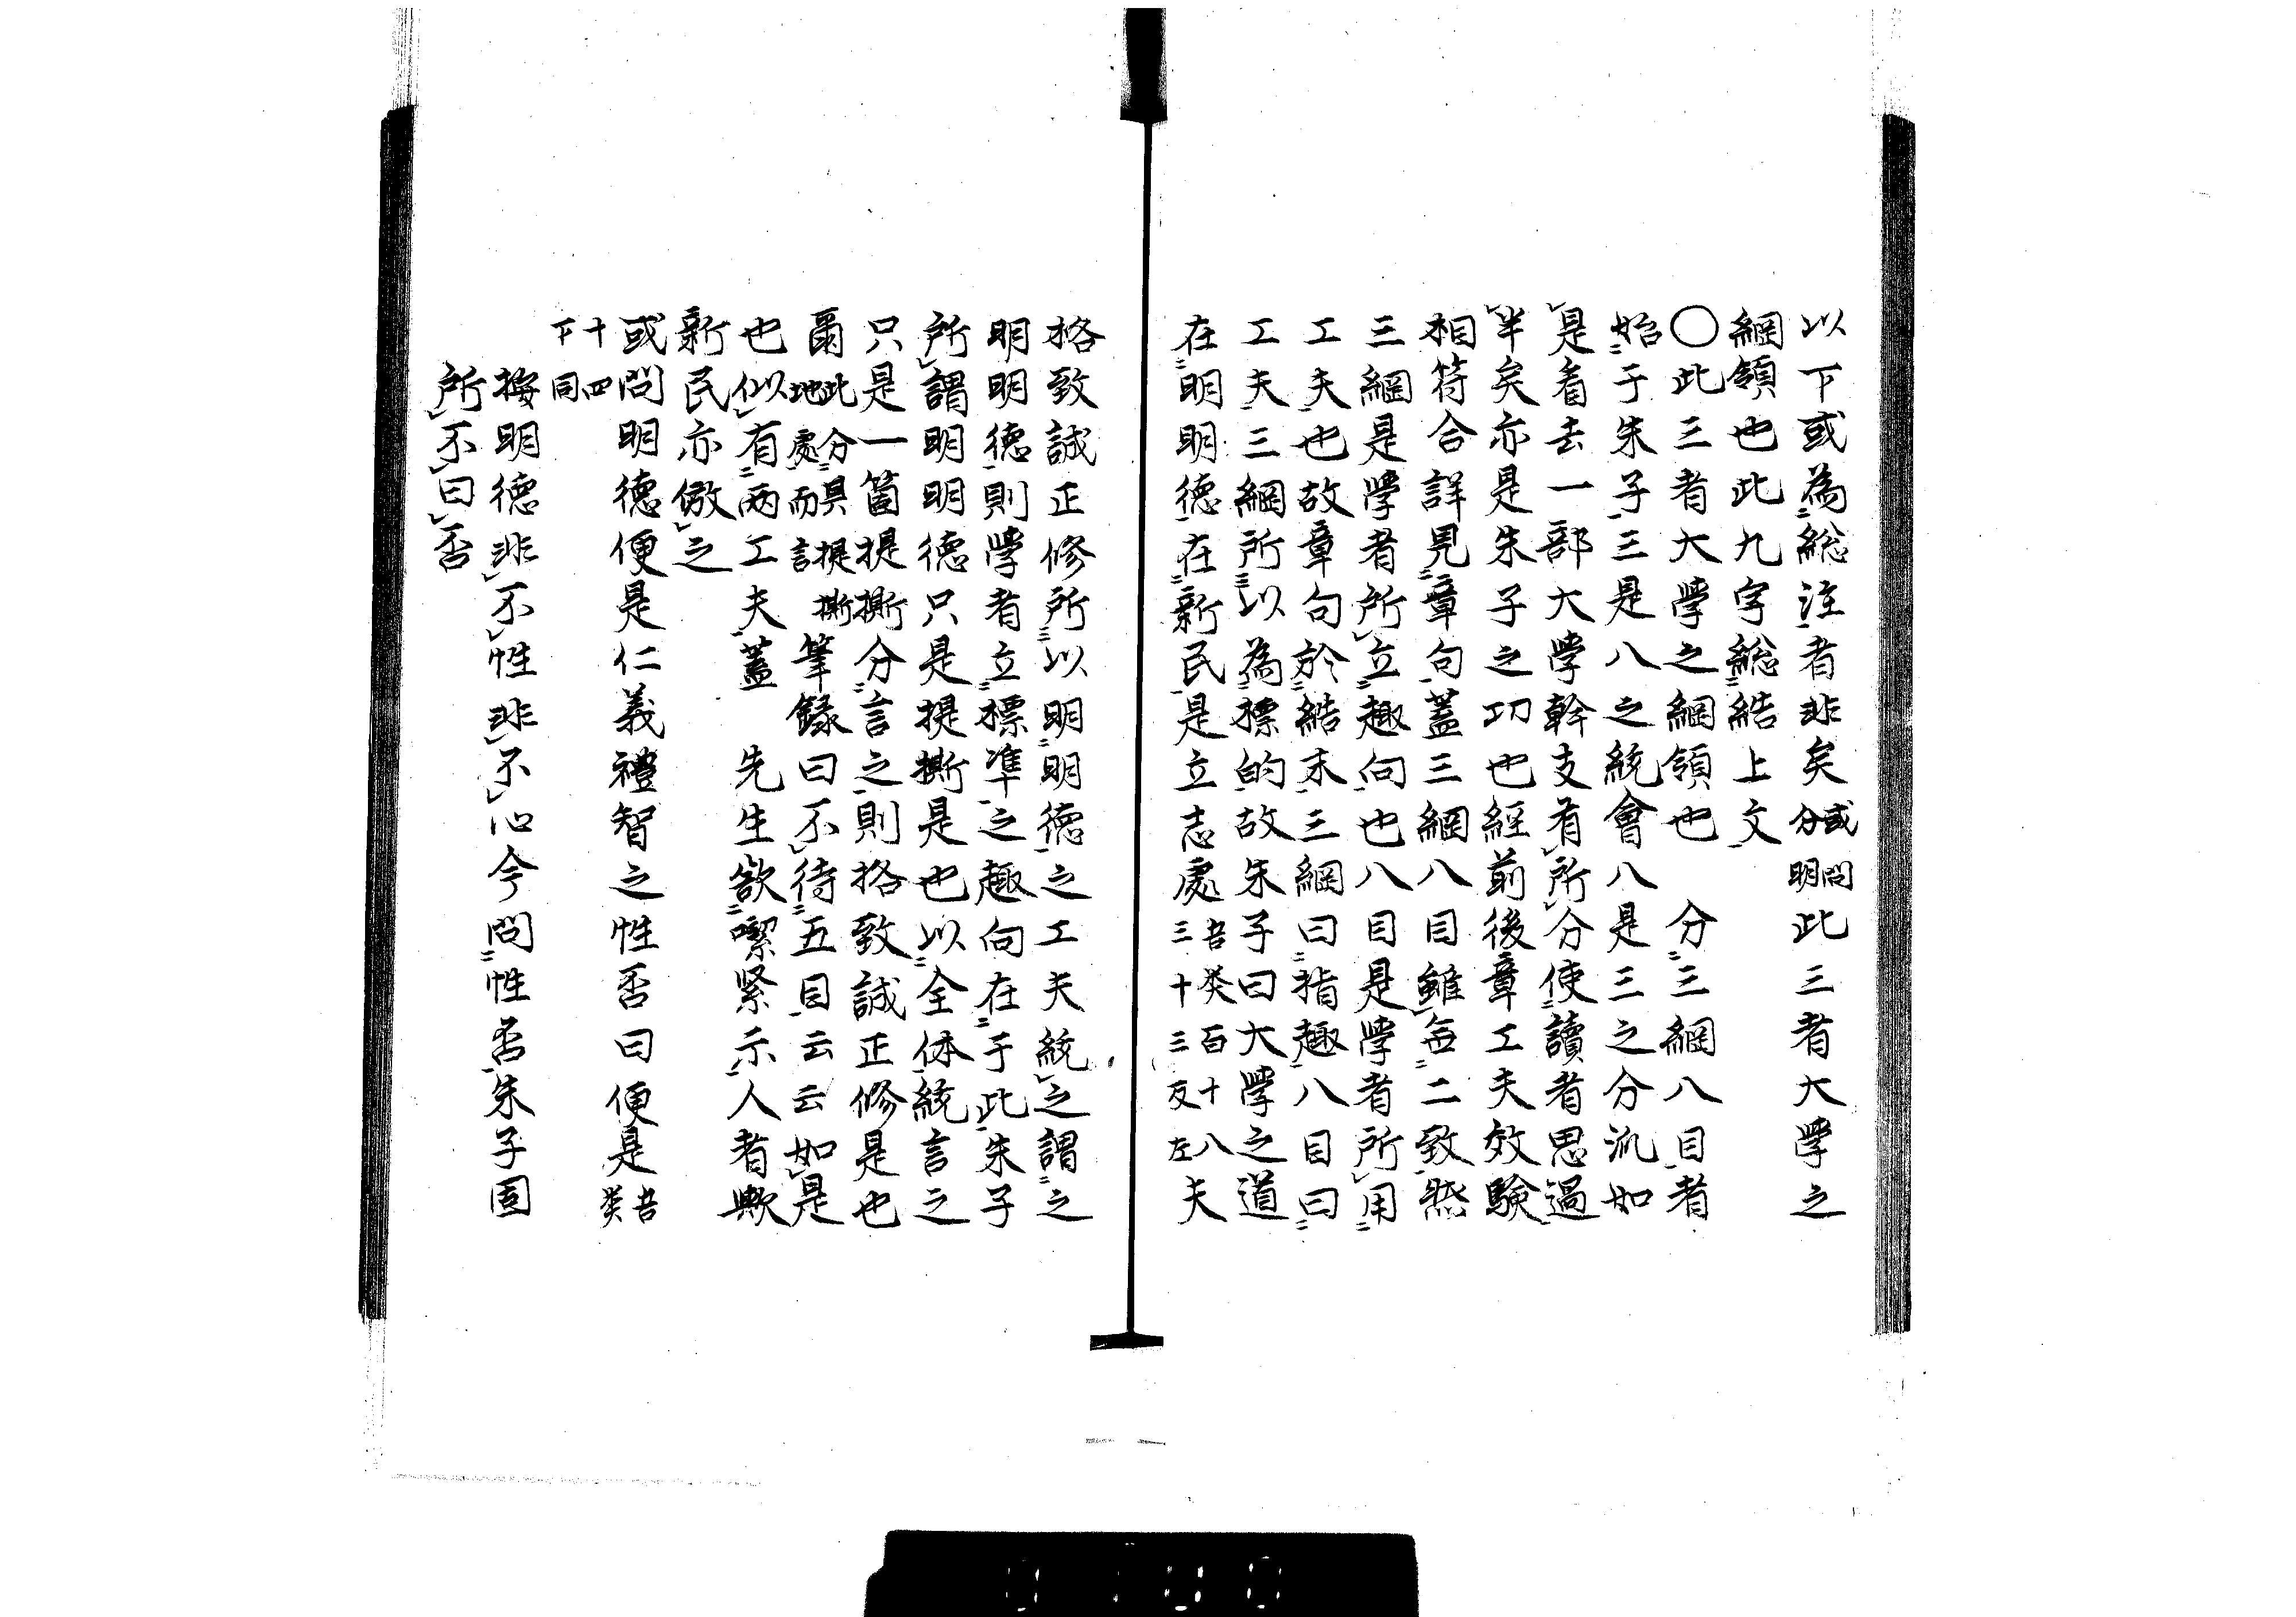 以下或為総注者非矣或問分明此三者大學之
綱領也此九字総結上文
〇此三者大學之綱領也 分三綱八目者
始于朱子三是八之統會八是三之分派如
是看去一部大学幹支有所分使讀者思過
半矣亦是朱子之功也経前後章工夫效験
相符合詳見章句蓋三綱八目雖無二致然
三綱是学者所立趣向也八目是学者所用
工夫也故章句於結末三綱曰指趣八目曰
工夫三綱所以為標的故朱子曰大學之道
在明明徳在新民是立志處吾類百十八三十三反左夫
格致誠正修所以明明徳之工夫統之謂之
明明徳則学者立標準之趣向在于此朱子
所謂明明徳只是提撕是也以全体統言之
只是一箇提撕分言之則格致誠正修是也
爾此分具提撕地處而言筆録曰不待五目云云如是
也似有两工夫蓋 先生欲喫緊示人者歟
新民亦倣之
或問明徳便是仁義禮智之性否曰便是吾類
十四下同
按明徳非不性非不心今問性否朱子固
所不曰否